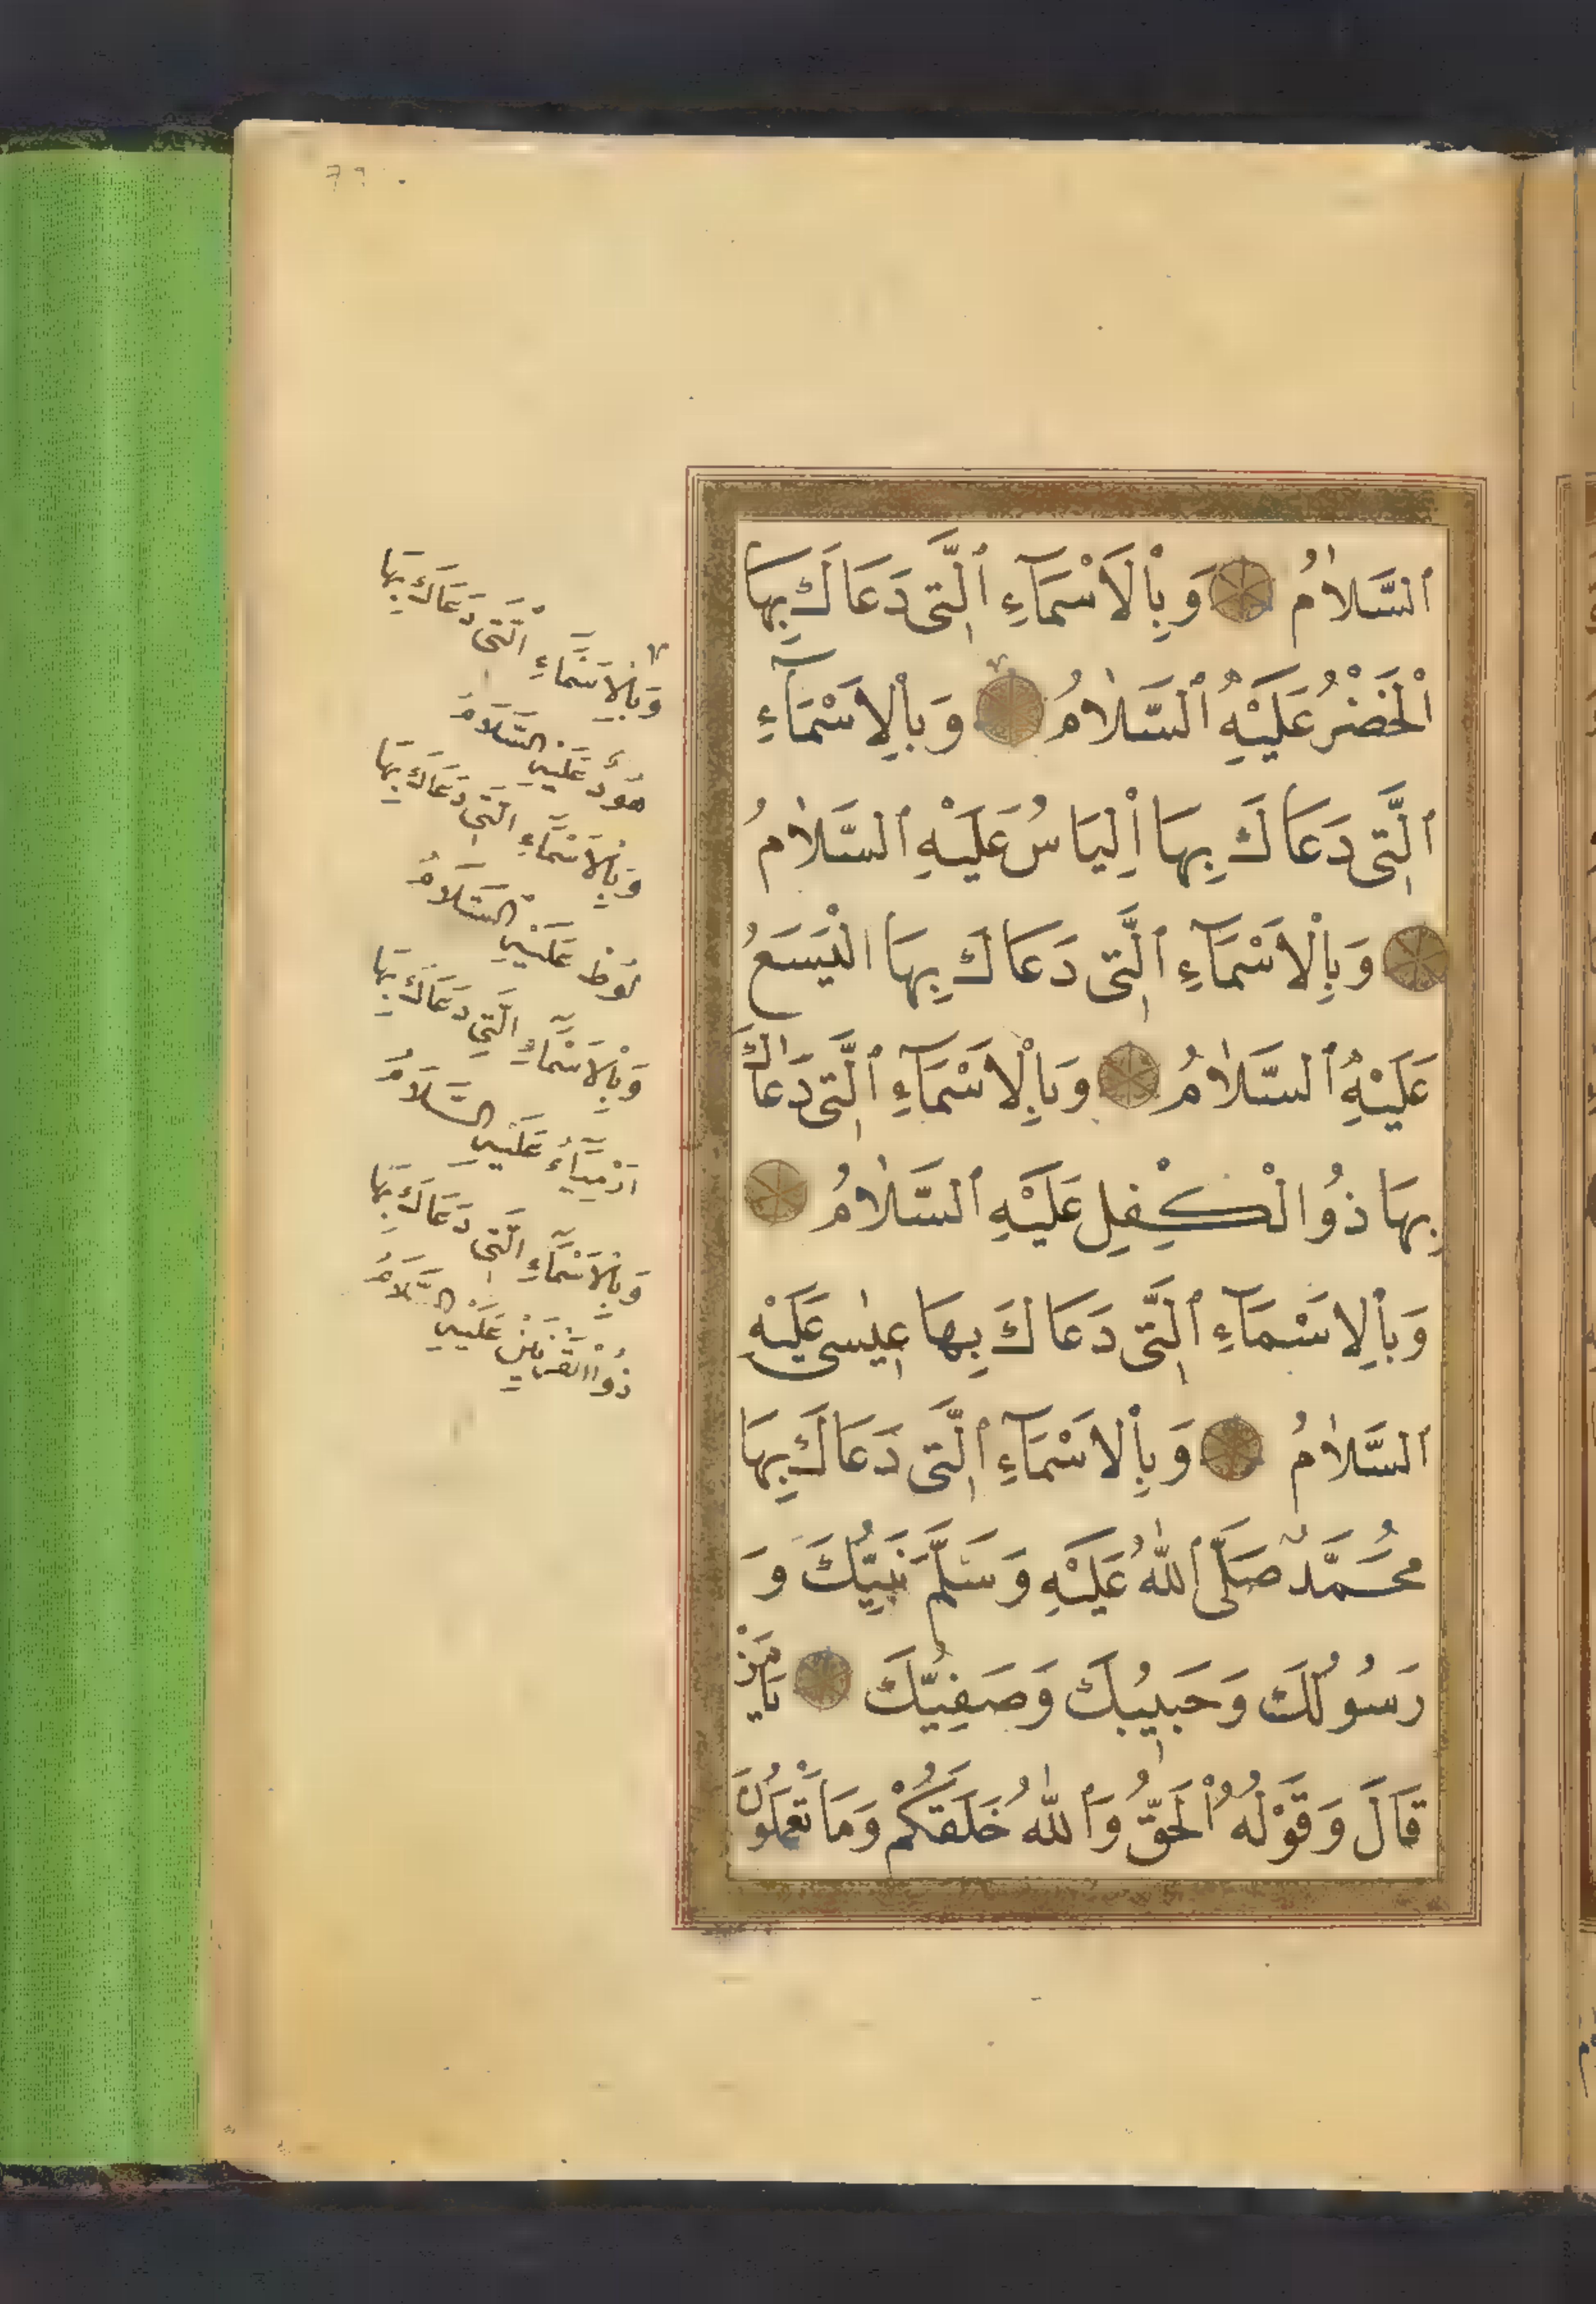 اَلسَّلَامُ وَبِالْاَسْمَآءِ الَّتِى دَعَاكَ بِهَا
الْخَضِرُ عَلَيْهِ السَّلَامُ وَبِالْاَسْمَآءِ
الَّتِى دَعَاكَ بِهَا اِلْيَاسُ عَلَيْهِ السَّلَامُ
وَبِالْاَسْمَآءِ الَّتِى دَعَاكَ بِهَا الْيَسَعُ
عَلَيْهِ السَّلَامُ وَبِالْاَسْمَآءِ الَّتِى دَعَاكَ
بِهَا ذُوالْكِفْلِ عَلَيْهِ السَّلَامُ
وَبِالْاَسْمَآءِ الَّتِى دَعَاكَ بِهَا عِيسٰى عَلَيْهِ
السَّلَامُ وَبِالْاَسْمَآءِ الَّتِى دَعَاكَ بِهَا
مُحَمَّدٌ صَلَّى اللّٰهُ عَلَيْهِ وَسَلَّمَ نَبِيُّكَ وَ
رَسُولُكَ وَحَبِيبُكَ وَصَفِيُّكَ يَامَنْ
قَالَ وَقَوْلُهُ الْحَقُّ وَاللّٰهُ خَلَقَكُمْ وَمَا تَعْمَلُونَ
وَبِالْاَسْمَآءِ الَّتِى دَعَاكَ بِهَا
هُودُ عَلَيْهِ السَّلَامُ
وَبِالْاَسْمَآءِ الَّتِى دَعَاكَ بِهَا
لُوطُ عَلَيْهِ السَّلَامُ
وَبِالْاَسْمَآءِ الَّتِى دَعَاكَ بِهَا
اَرْمِيَآءُ عَلَيْهِ السَّلَامُ
وَبِالْاَسْمَآءِ الَّتِى دَعَاكَ بِهَا
ذُوالْقَرْنَيْنِ عَلَيْهِ السَّلَامُ